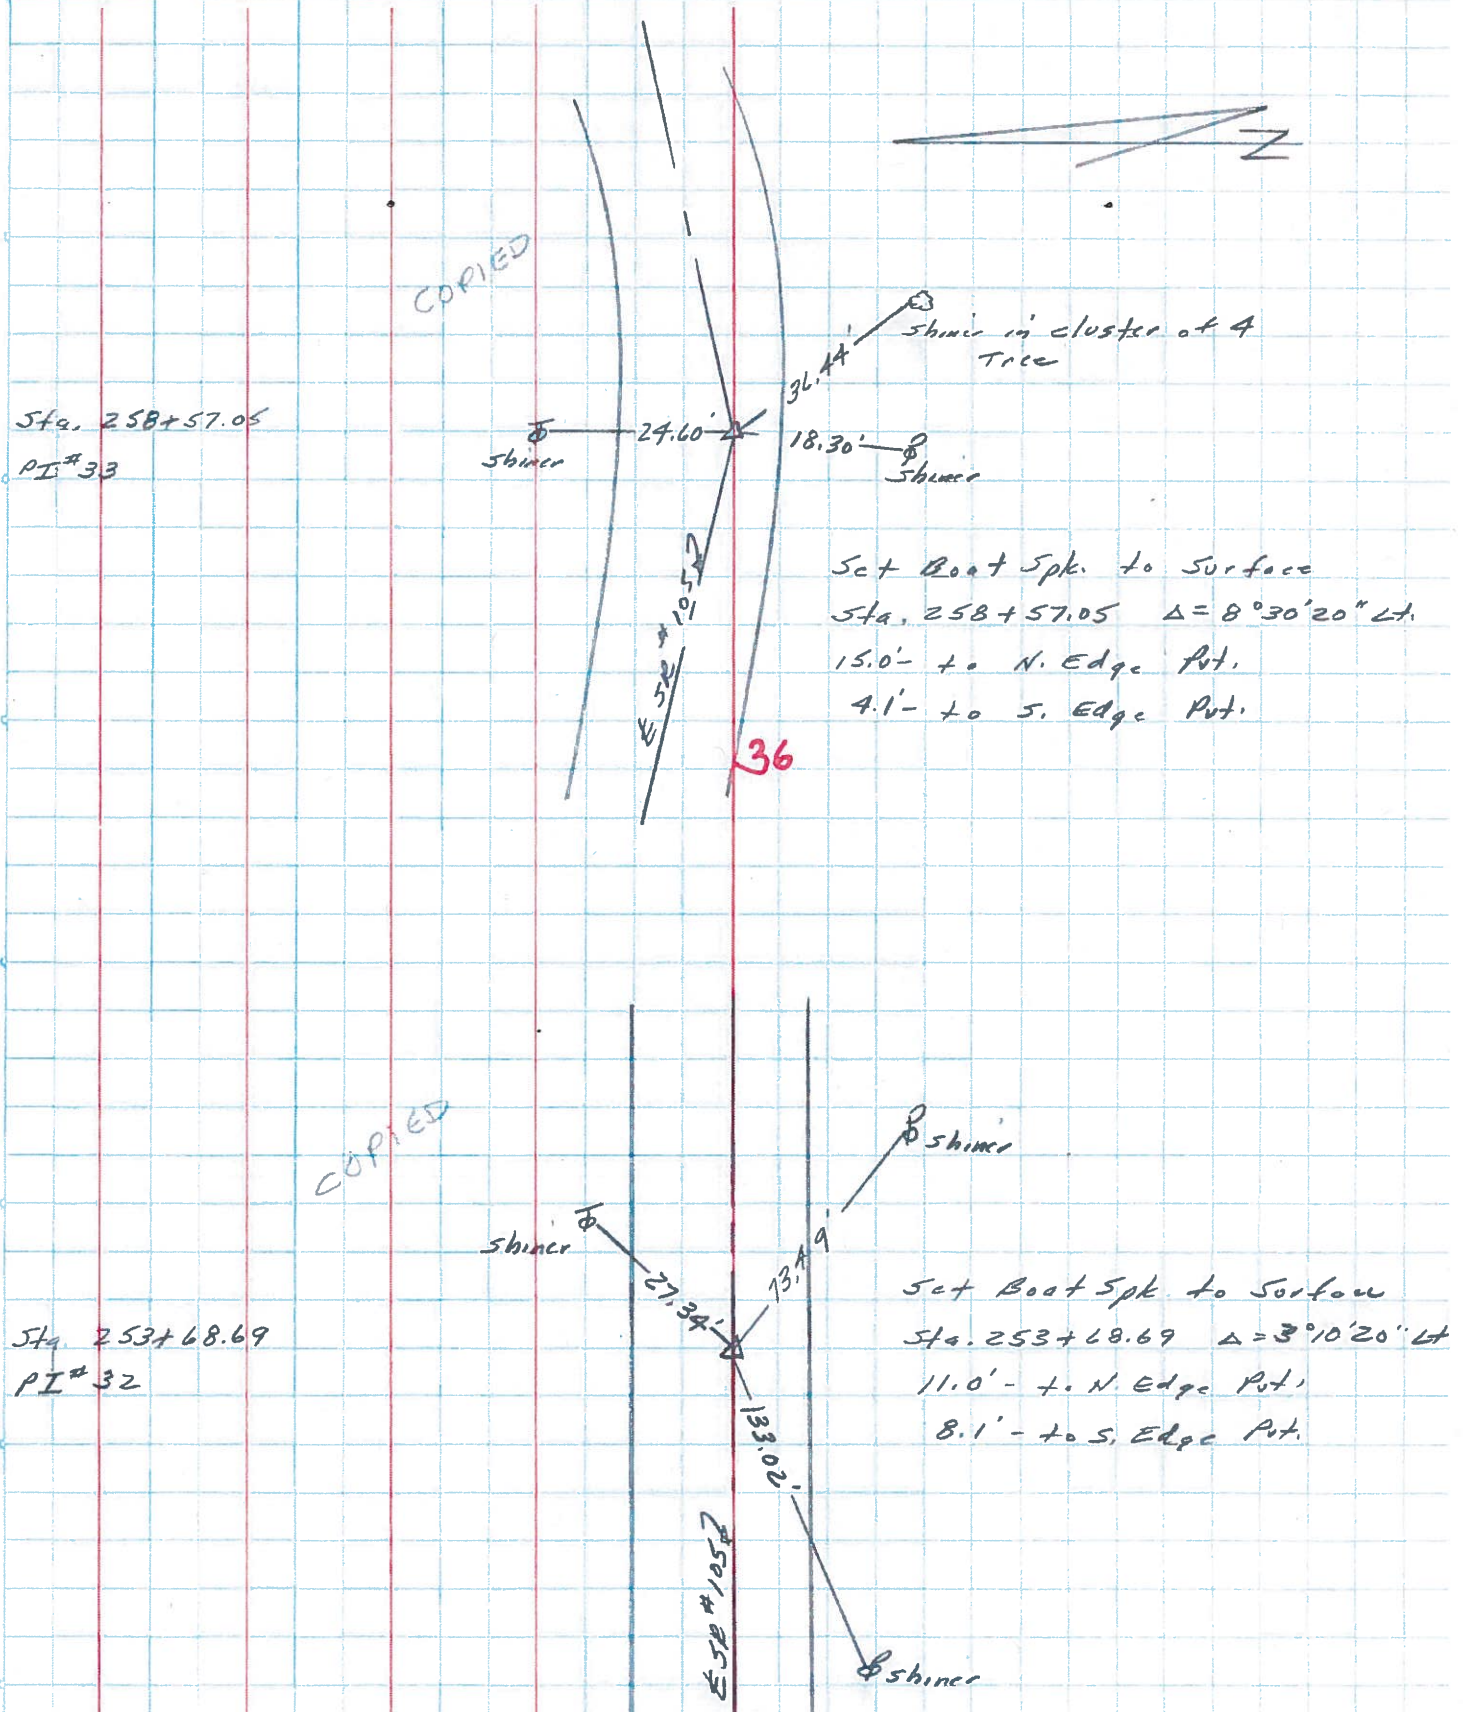 N
COPIED
shiner in cluster of 4
Tree
36.44'
Sta. 258+57.05
PI #33
24.60'
shiner
18.30'
shiner
Set Boat Spk. to Surface
Sta. 258+57.05 Δ= 8°30'20" Lt.
15.0'- to N. Edge Pvt.
4.1'- to S. Edge Pvt.
℄ SR #1057
36
COPIED
shiner
shiner
73.49'
27.34'
Set Boat Spk to Surface
Sta. 253+68.69
Sta. 253+68.69 Δ=3°10'20" Lt
PI #32
11.0'- to N. Edge Pvt.
8.1'- to S. Edge Pvt.
133.02'
℄ SR #1057
shiner